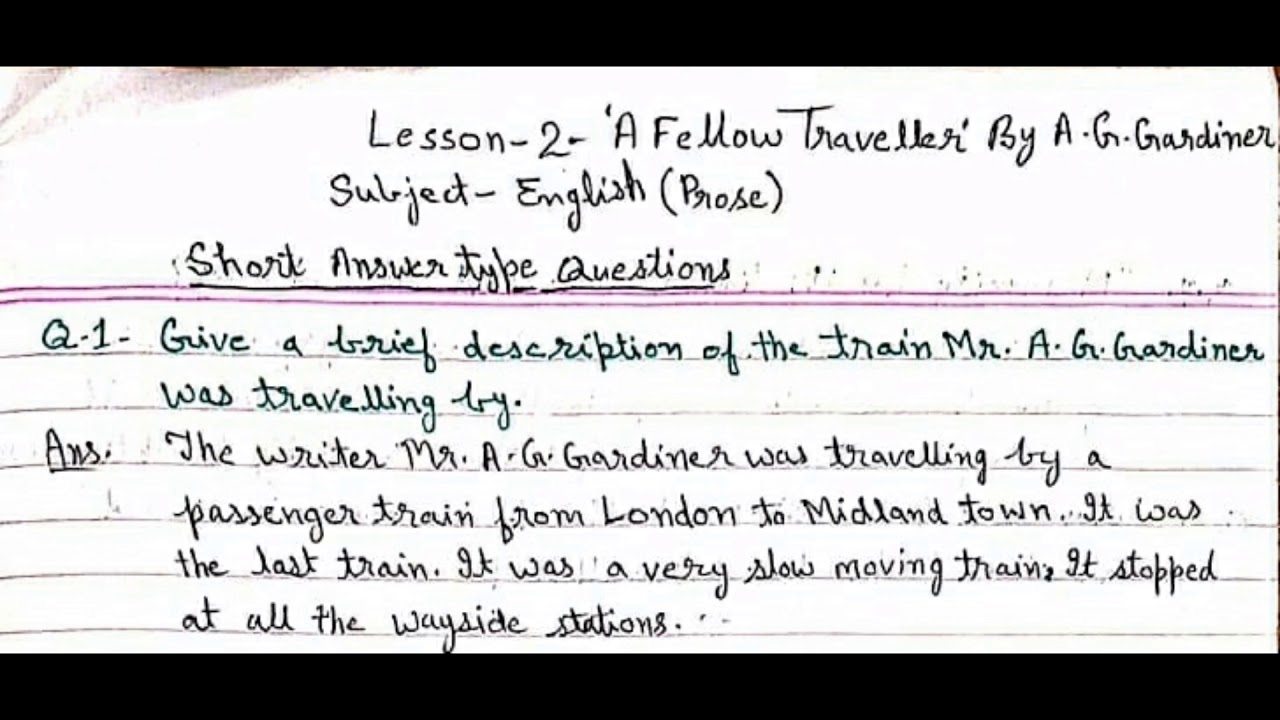 Lesson-2- 'A Fellow Traveller' By A.G.Gardiner
Subject- English (Prose)
Short Answer type Questions
Q.1- Give a brief description of the train Mr. A.G.Gardiner
was travelling by.
Ans. The writer Mr. A.G.Gardiner was travelling by a
passenger train from London to Midland town. It was
the last train. It was a very slow moving train, It stopped
at all the wayside stations.